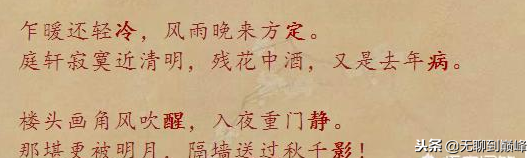 乍暖还轻冷，风雨晚来方定。
庭轩寂寞近清明，残花中酒，又是去年病。
楼头画角风吹醒，入夜重门静。
那堪更被明月，隔墙送过秋千影！
头条 @无聊到巅峰